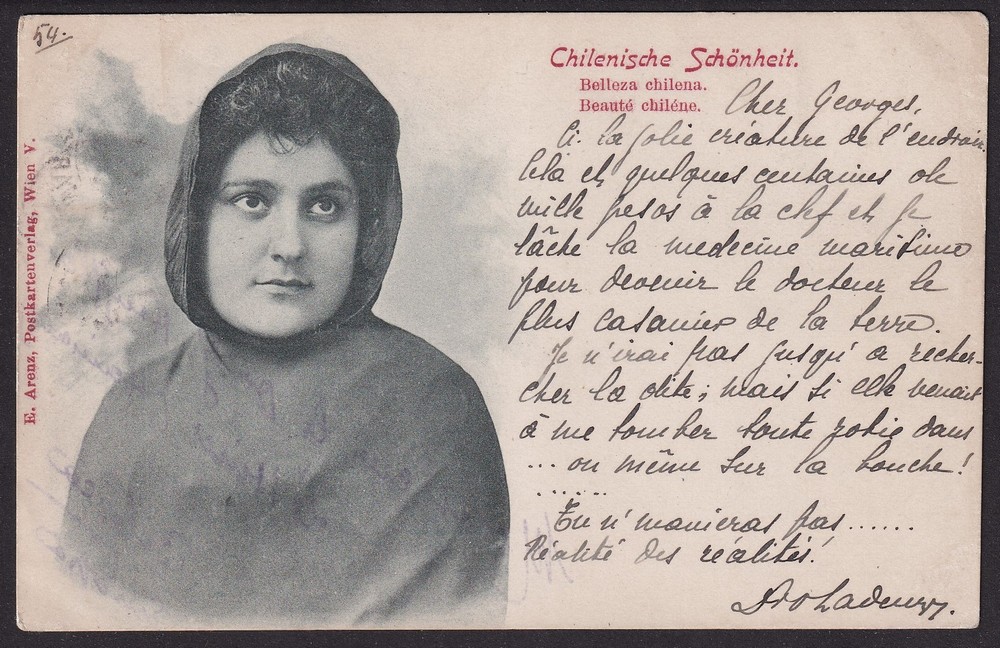 54.
Chilenische Schönheit.
Belleza chilena.
Beauté chiléne.
E. Arenz, Postkartenverlag, Wien V.
Cher Georges,
Ci. la jolie créature de l'endroit.
Celà et quelques centaines de
mille pesos à la clef et je
lâche la medecine maritime
pour devenir le docteur le
plus casanier de la terre.
Je n'irai pas jusqu'a recher-
cher la dite; mais si elle venait
à me tomber toute rotie dans
... ou même sur la bouche!
......
Tu n' pas......
Réalité des réalités!